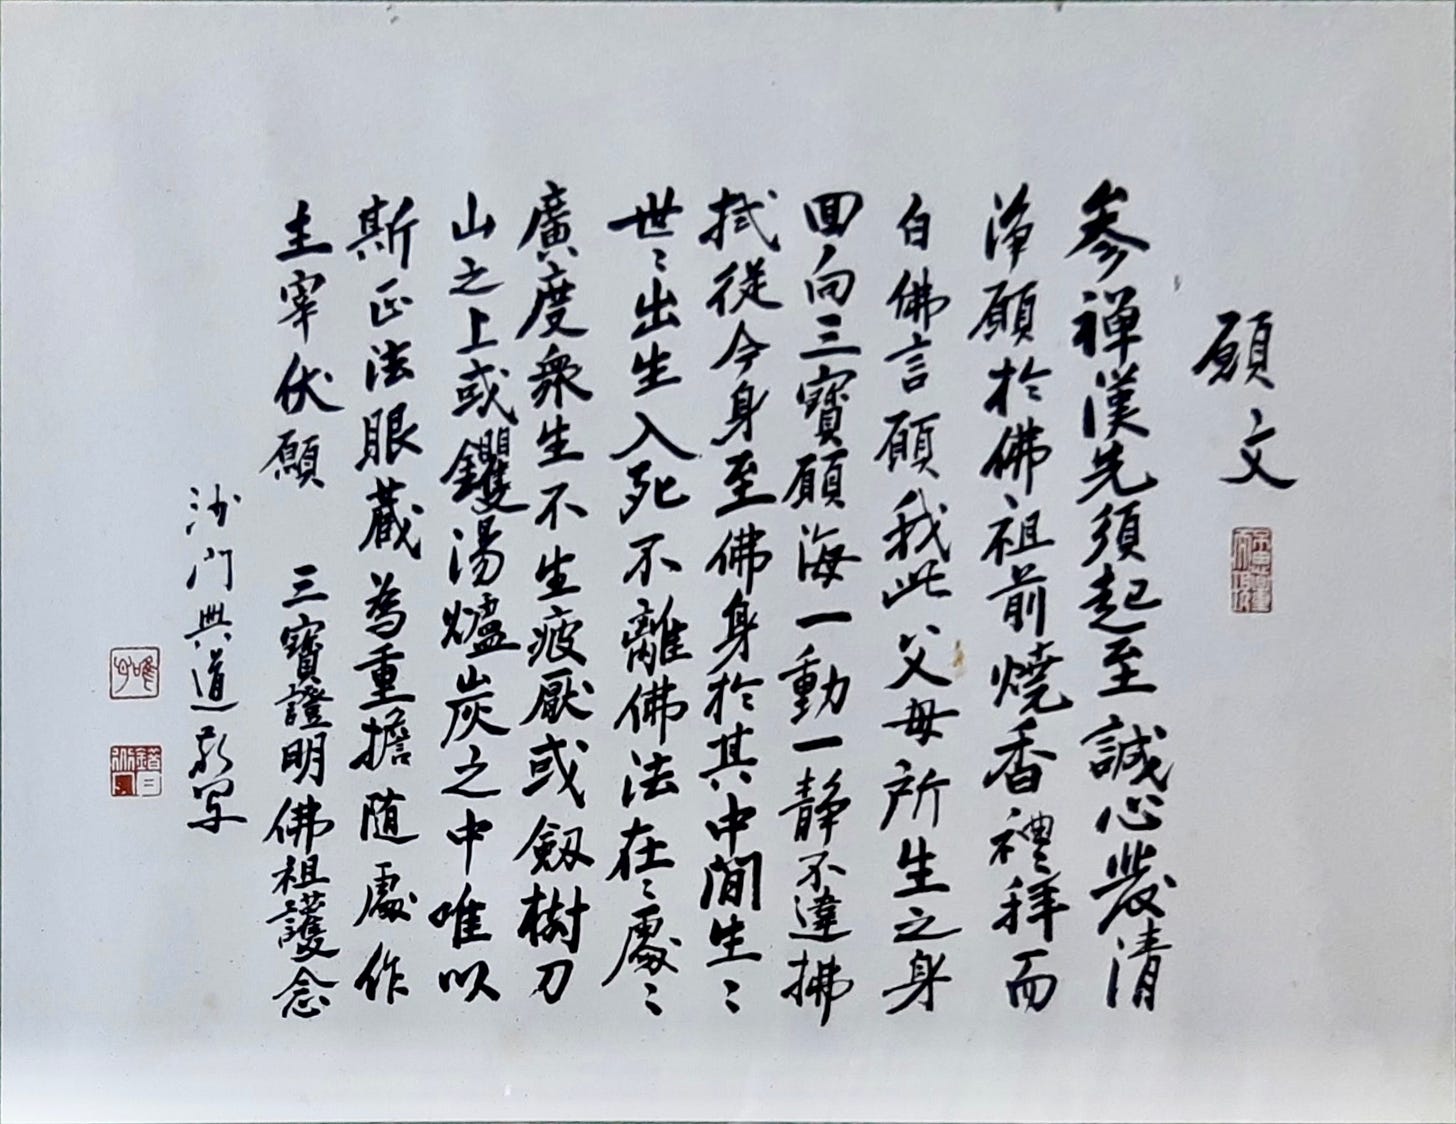 願文
参禅漢先須起至誠心發清
浄願於佛祖前燒香禮拜而
白佛言願我此父母所生之身
回向三寶願海一動一静不違
拭從今身至佛身於其中間生〻
世〻出生入死不離佛法在〻處〻
廣度衆生不生疲厭或劔樹刀
山之上或鑊湯爐炭之中唯以
斯正法眼蔵為重擔随處作
主宰伏願 三寶證明佛祖護念
沙門興道敬写